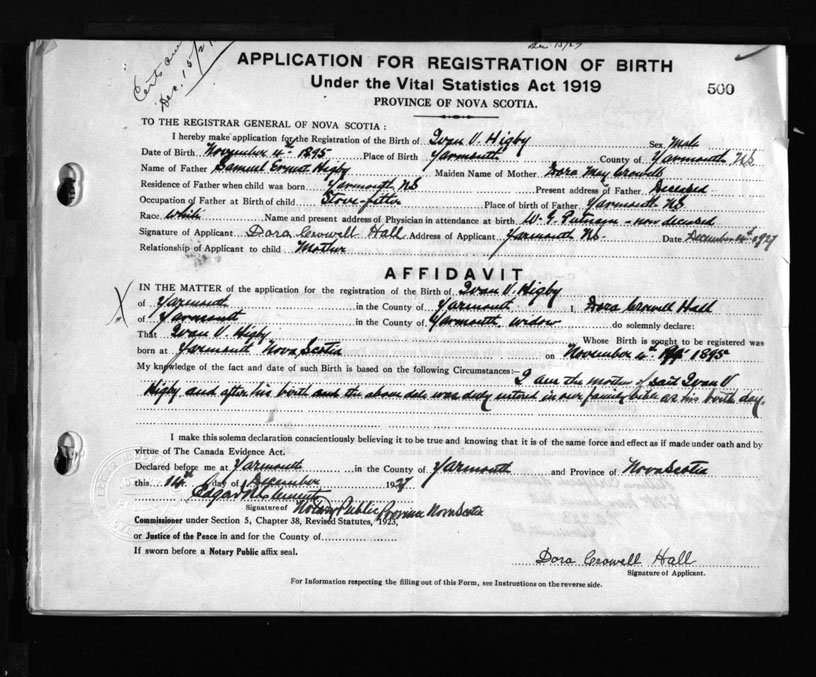 Dec 15/27
Dec. 15/27
APPLICATION FOR REGISTRATION OF BIRTH
Under the Vital Statistics Act 1919
500
PROVINCE OF NOVA SCOTIA.
TO THE REGISTRAR GENERAL OF NOVA SCOTIA:
I hereby make application for the Registration of the Birth of Ivan V. Higby Sex Male
Date of Birth November 4th 1895 Place of Birth Yarmouth County of Yarmouth NS
Name of Father Samuel Ernest Higby Maiden Name of Mother Dora May Crowell
Residence of Father when child was born Yarmouth NS Present address of Father Deceased
Occupation of Father at Birth of child Stove-fitter Place of birth of Father Yarmouth NS
Race White Name and present address of Physician in attendance at birth W. G. Putnam - now deceased
Signature of Applicant Dora Crowell Hall Address of Applicant Yarmouth NS. Date December 14th 1927
Relationship of Applicant to child Mother
AFFIDAVIT
IN THE MATTER of the application for the registration of the Birth of Ivan V. Higby
of Yarmouth in the County of Yarmouth I, Dora Crowell Hall
of Yarmouth in the County of Yarmouth, widow do solemnly declare:
That Ivan V. Higby Whose Birth is sought to be registered was
born at Yarmouth Nova Scotia on November 4th 1895
My knowledge of the fact and date of such Birth is based on the following Circumstances:— I am the mother of said Ivan V
Higby and after his birth and the above date was duly entered in our family bible as his birth day.
I make this solemn declaration conscientiously believing it to be true and knowing that it is of the same force and effect as if made under oath and by
virtue of The Canada Evidence Act.
Declared before me at Yarmouth in the County of Yarmouth and Province of Nova Scotia
this 14th day of December 1927
Edgar N Clements
Signature of Notary Public Province Nova Scotia
Commissioner under Section 5, Chapter 38, Revised Statutes, 1923,
or Justice of the Peace in and for the County of
If sworn before a Notary Public affix seal.
Dora Crowell Hall
Signature of Applicant.
For Information respecting the filling out of this Form, see Instructions on the reverse side.